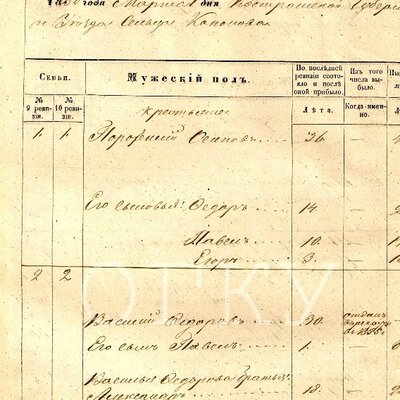 года Марта дня Костромской Губер
и Уезда Сельца
Семьи.
Мужеский пол.
По последней ревизіи состояло и послѣ оной прибыло.
Изъ того числа выбыло.
№ 9 ревизіи.
№ 10 ревизіи.
Лѣта.
Когда именно.
Крестьяне
1 1 Осиповъ 36 —
Его сыновья: Ѳедоръ 14 —
Павелъ 10 —
Егоръ 3 —
2 2
Василий Ѳедоровъ 30 отданъ в рекруты в 1855
Его сынъ Павелъ 1 —
Василья Ѳедорова братья:
Александръ 18 —
ОГКУ